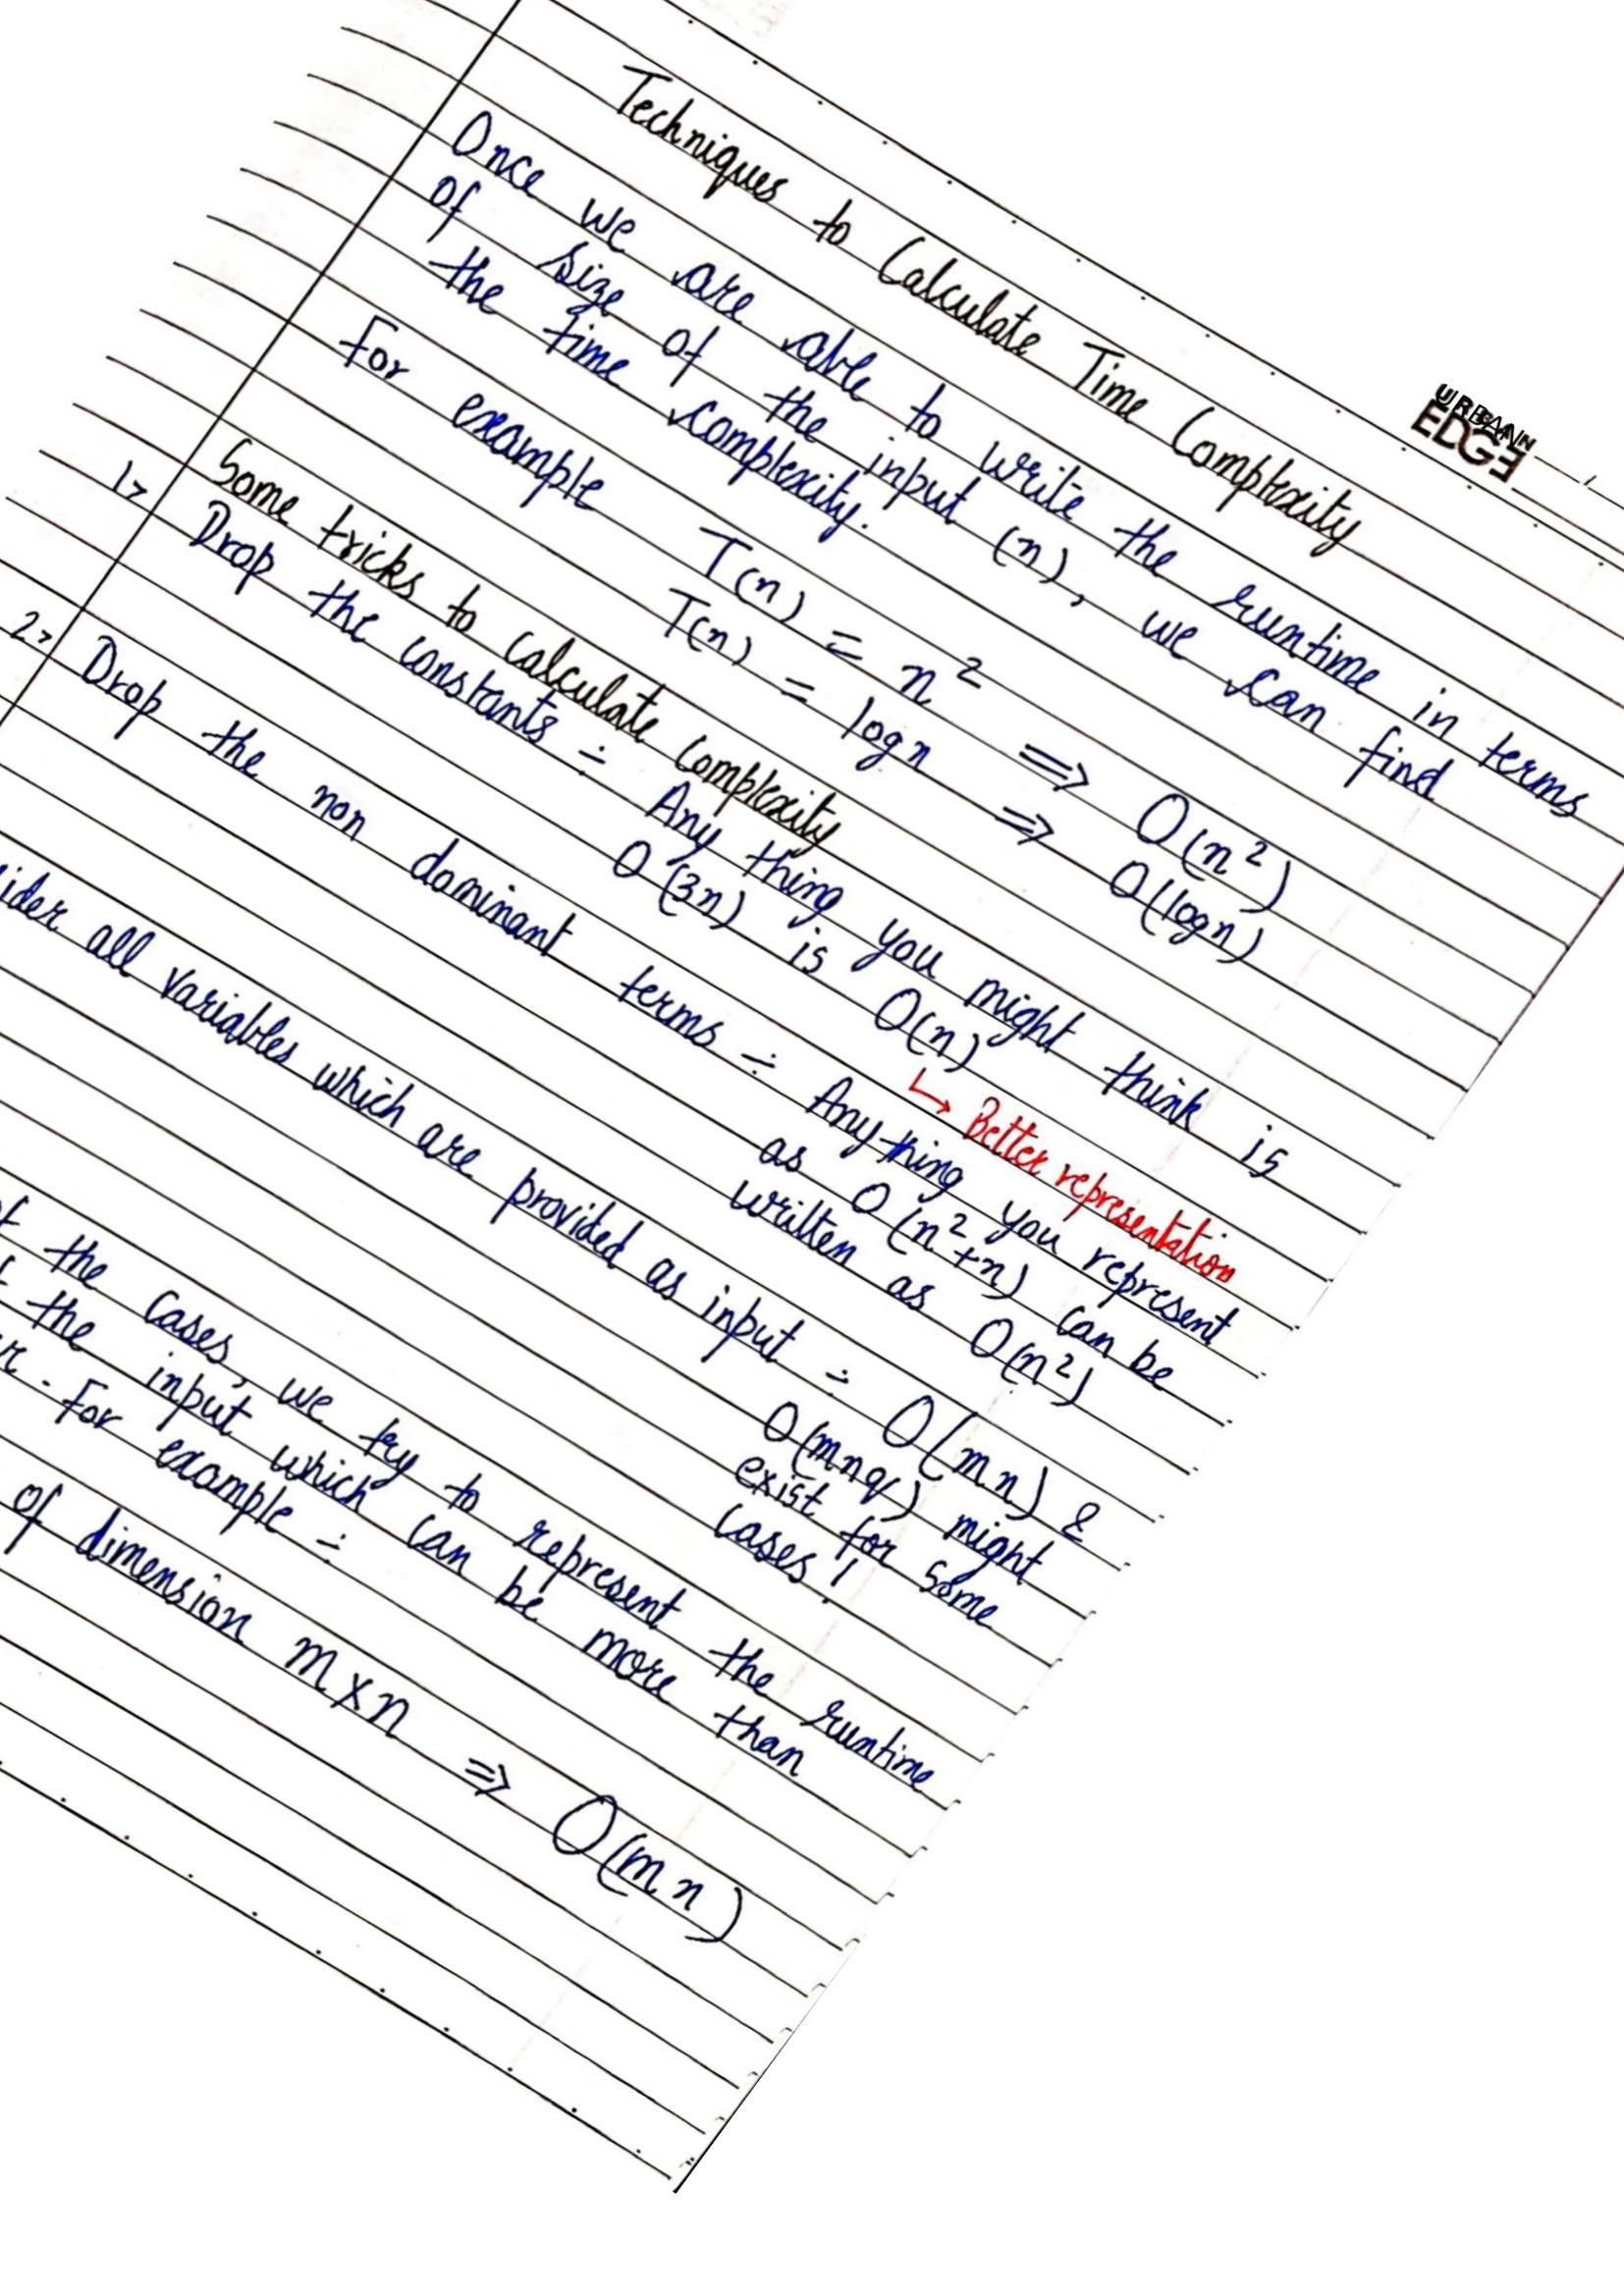 URBAN
EDGE
Techniques to Calculate Time Complexity
Once we are able to write the runtime in terms
of size of the input (n), we can find
the time complexity.
For example T(n) = n² ⇒ O(n²)
T(n) = log n ⇒ O(log n)
Some tricks to calculate complexity
1> Drop the constants ÷ Any thing you might think is
O(3n) is O(n)
↳ Better representation
2> Drop the non dominant terms ÷ Anything you represent
as O(n²+n) can be
written as O(n²)
all variables which are provided as input ÷ O(mn) &
O(mnq) might
exist for some
cases!
the cases, we try to represent the runtime
the input which can be more than
. For example ÷
of dimension m×n ⇒ O(mn)